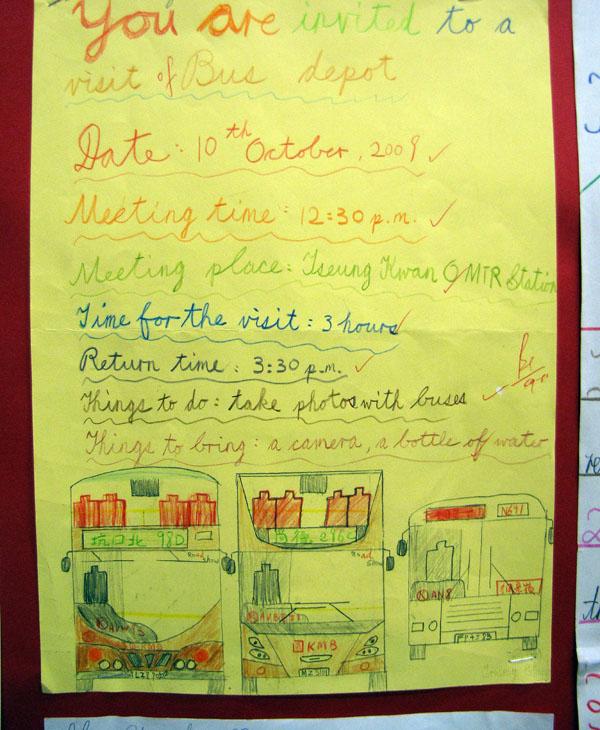 You are invited to a
visit of Bus depot
Date: 10th October, 2009
Meeting time: 12:30 p.m.
Meeting place: Tseung Kwan O MTR Station
Time for the visit: 3 hours
Return time: 3:30 p.m.
Things to do: take photos with buses
Things to bring: a camera, a bottle of water
坑口北 98D
Road Show
Road Show
N691
KMB